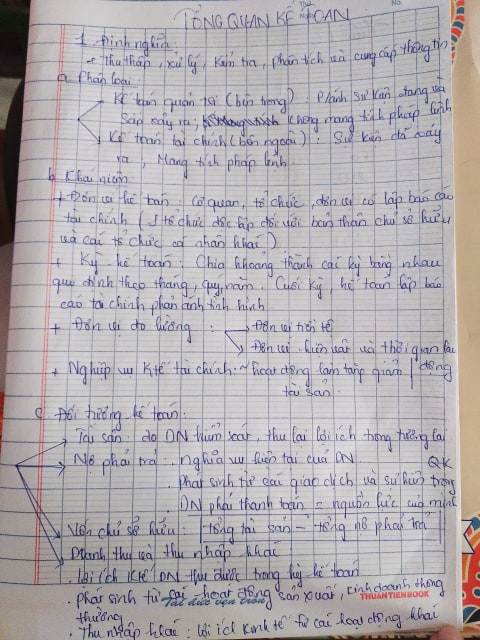 Thứ
Ngày
No.
TỔNG QUAN KẾ TOÁN
1. Định nghĩa:
- Thu thập, xử lý, kiểm tra, phân tích và cung cấp thông tin
a. Phân loại:
Kế toán quản trị (bên trong): P/ánh sự kiện đang và
sắp xảy ra, không mang tính pháp lệnh
Kế toán tài chính (bên ngoài): Sự kiện đã xảy
ra, Mang tính pháp lệnh.
b. Khái niệm:
+ Đơn vị kế toán: Cơ quan, tổ chức, đơn vị có lập báo cáo
tài chính (1 tổ chức độc lập đối với bản thân chủ sở hữu
và các tổ chức cá nhân khác)
+ Kỳ kế toán: Chia khoảng thành các kỳ bằng nhau
quy định theo tháng, quý, năm. Cuối kỳ, kế toán lập báo
cáo tài chính phản ánh tình hình.
+ Đơn vị đo lường: Đơn vị tiền tệ
Đơn vị hiện vật và thời gian lao
động
+ Nghiệp vụ Ktế tài chính: ~ hoạt động làm tăng giảm
tài sản.
c. Đối tượng kế toán:
Tài sản: do DN kiểm soát, thu lại lợi ích trong tương lai
Nợ phải trả: . nghĩa vụ hiện tại của DN.
. phát sinh từ các giao dịch và sự kiện trong
QK
. DN phải thanh toán = nguồn lực của mình
Vốn chủ sở hữu: tổng tài sản - tổng nợ phải trả
Doanh thu và thu nhập khác
. Lợi ích Ktế DN thu được trong kỳ kế toán
. phát sinh từ các hoạt động sản xuất, kinh doanh thông
Tài đức vẹn toàn
THUANTIENBOOK
thường
. Thu nhập khác: lợi ích kinh tế từ các hoạt động khác